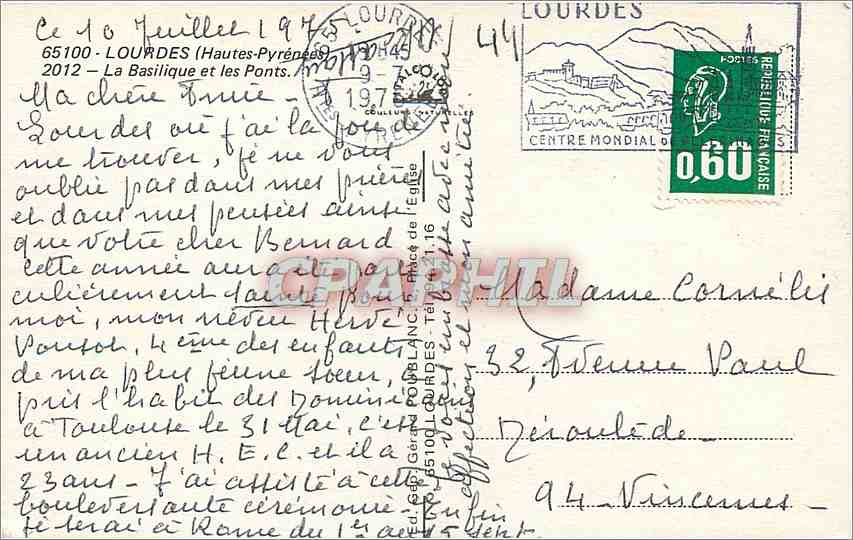 Ce 10 Juillet 1975
65100 - LOURDES (Hautes-Pyrénées)
2012 — La Basilique et les Ponts.
Ma chère Amie -
Lourdes où j'ai la joie de
me trouver, je ne vous
oublie pas dans mes prières
et dans mes pensées ainsi
que votre cher Bernard
cette année aura été parti
culièrement sainte pour
moi, mon neveu Hervé
Ponsot, 4ème des enfants
de ma plus jeune soeur, a
pris l'habit des Dominicains
à Toulouse le 31 Mai, c'est
un ancien H.E.C. et il a
23 ans - J'ai assisté à cette
bouleversante cérémonie - Enfin
je serai à Rome du 1er au 5 sept.
Je vous embrasse avec mon
affection et mon amitié.
Ed. Gép. Gérard POUBLANC, 5, Place de l'Eglise
65100 LOURDES - Tél.
21.16
LOURDES
1845
9-7
CPARHTI
44
LOURDES
CENTRE MONDIAL
REPUBLIQUE FRANÇAISE
0,60
Madame Cornélis
32, Avenue Paul
Déroulède
94 - Vincennes